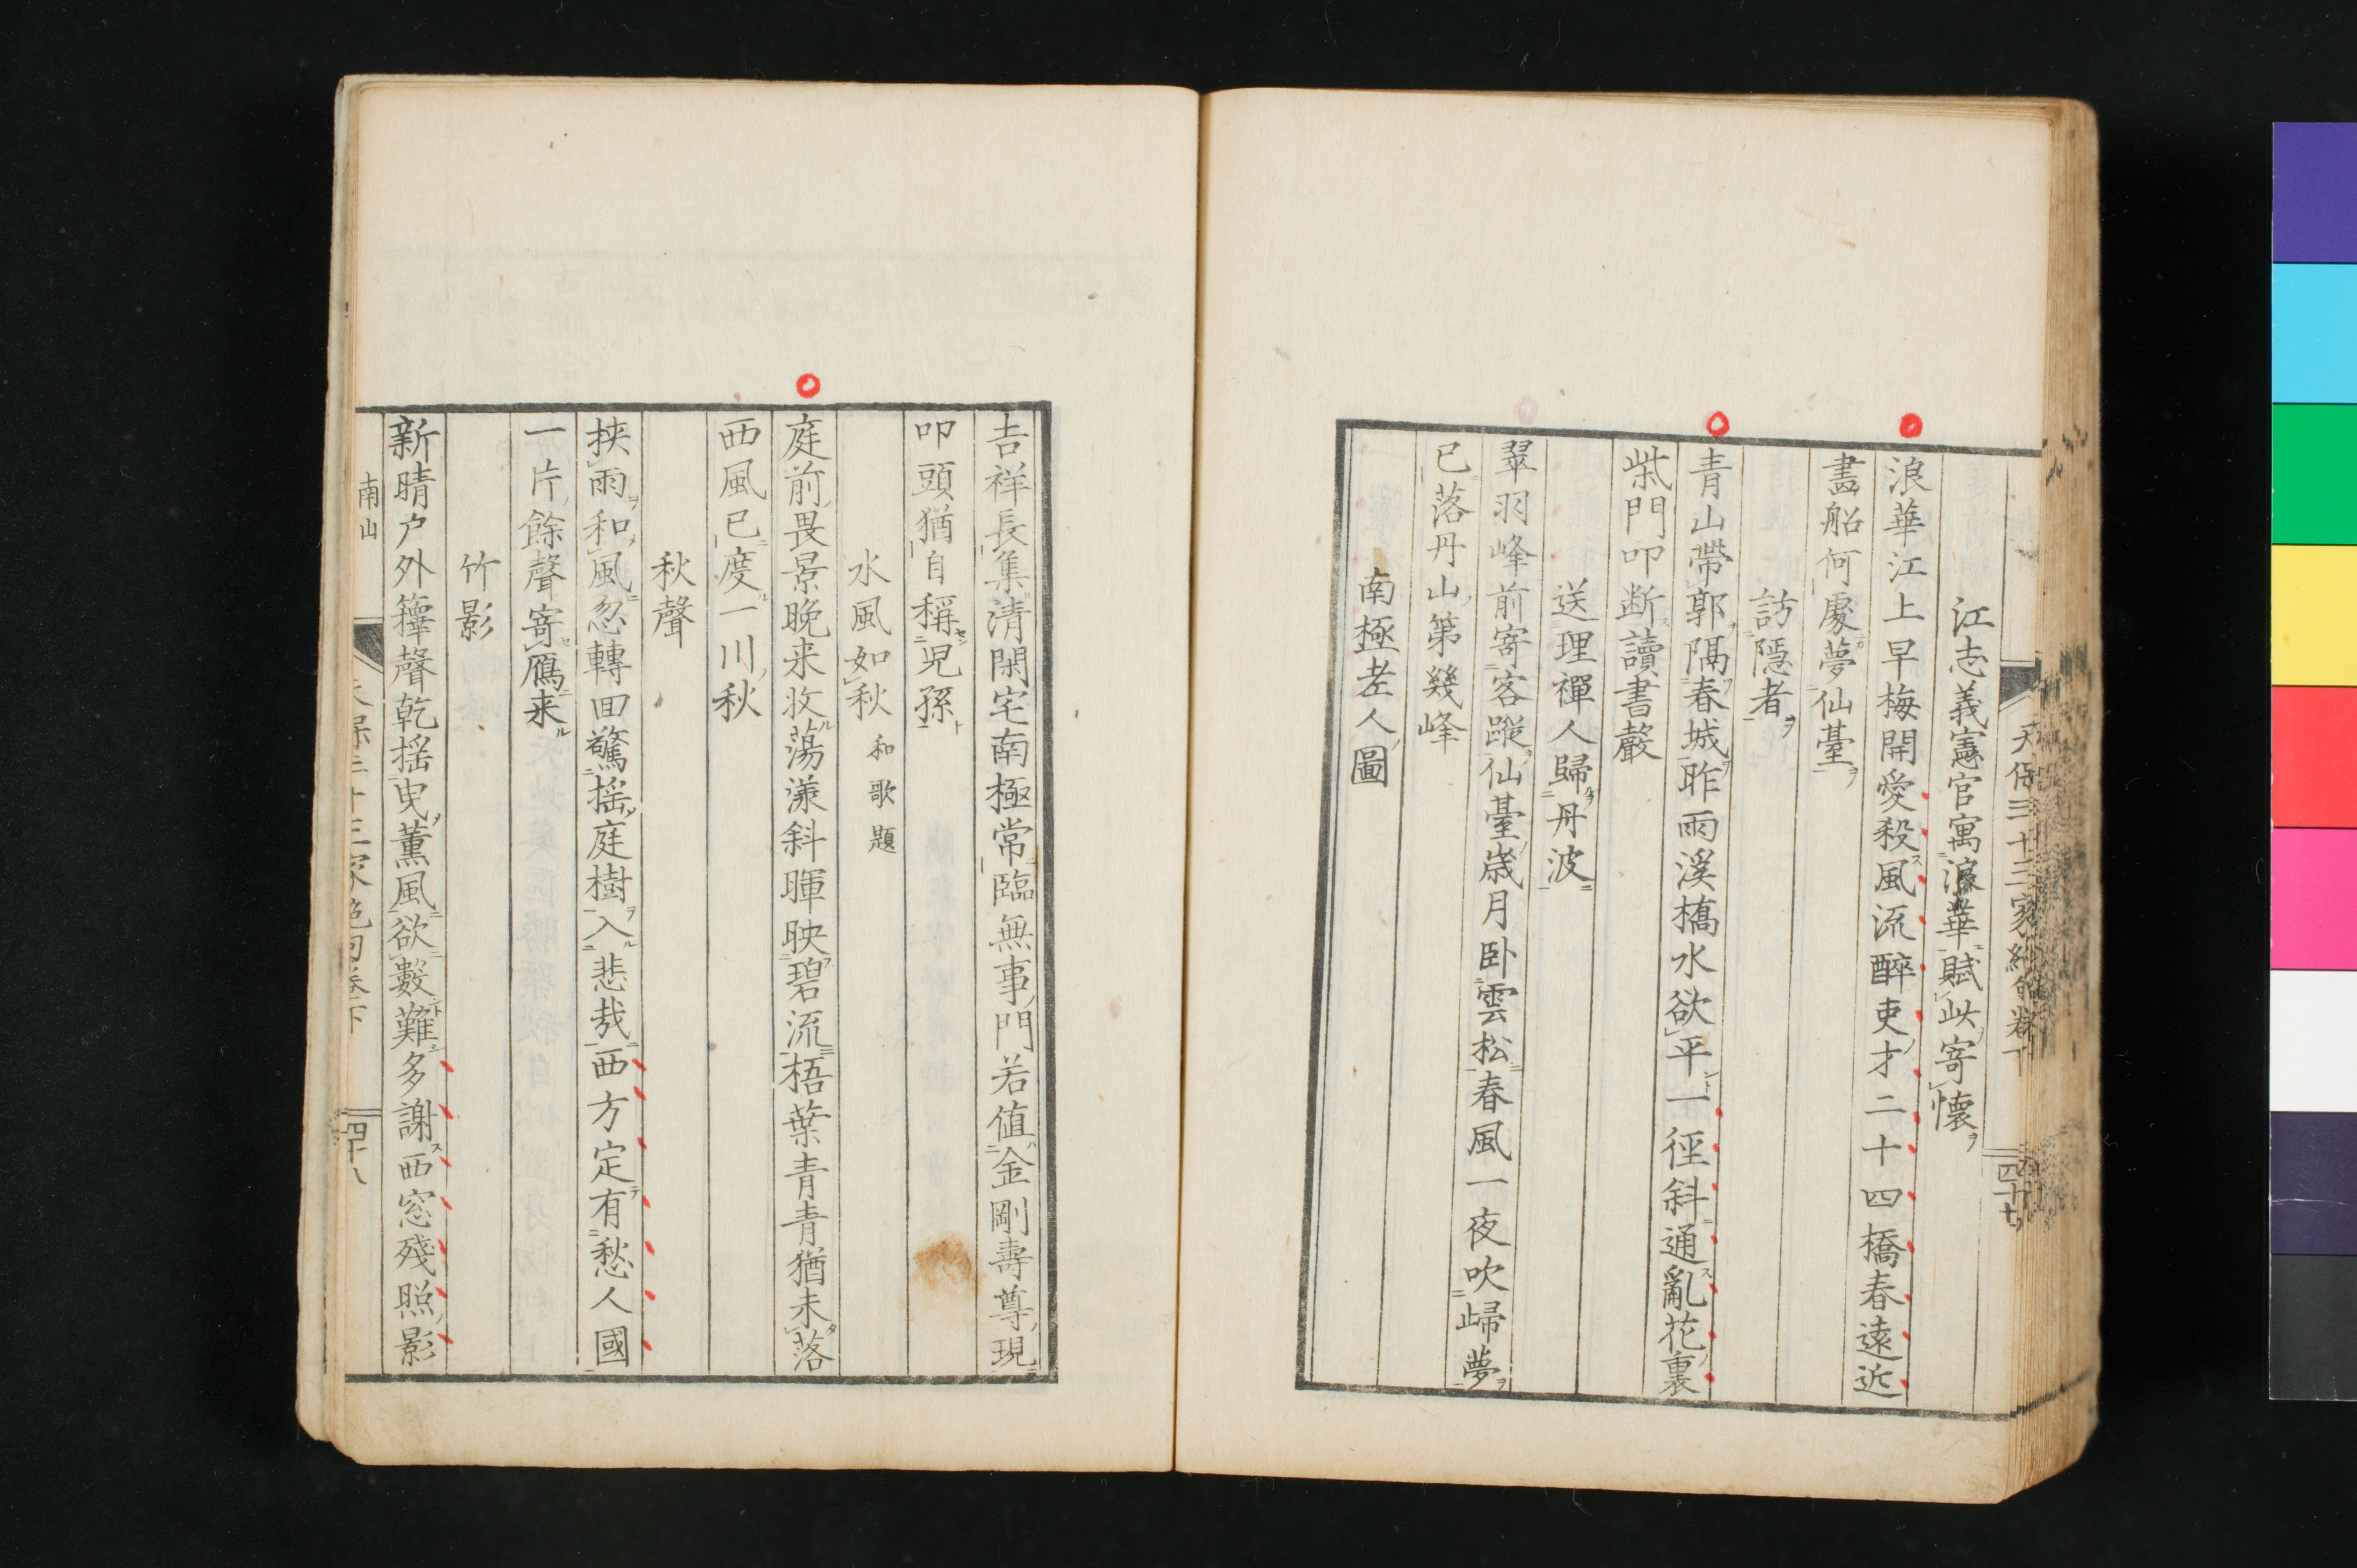 天保三十三家絶句卷下
四十七
江志義憲官寓浪華賦此寄懷
浪華江上早梅開愛殺風流醉吏才二十四橋春遠近
畵船何處夢仙臺
訪隱者
青山帶郭隔春城昨雨溪橋水欲平一徑斜通亂花裏
柴門叩断讀書聲
送理禪人歸丹波
翠羽峰前寄客蹤仙臺歲月卧雲松春風一夜吹歸夢
已落丹山第幾峰
南極老人圖
吉祥長集清閑宅南極常臨無事門若值金剛壽尊現
叩頭猶自稱児孫
水風如秋 和歌題
庭前畏景晚来收蕩漾斜暉映碧流梧葉青青猶未落
西風已度一川秋
秋聲
挟雨和風忽轉回驚揺庭樹入悲哉西方定有愁人國
一片餘聲寄鴈来
竹影
新晴户外籜聲乾揺曳薫風欲數難多謝西窓殘照影
南山
天保三十三家絶句卷下
四十八